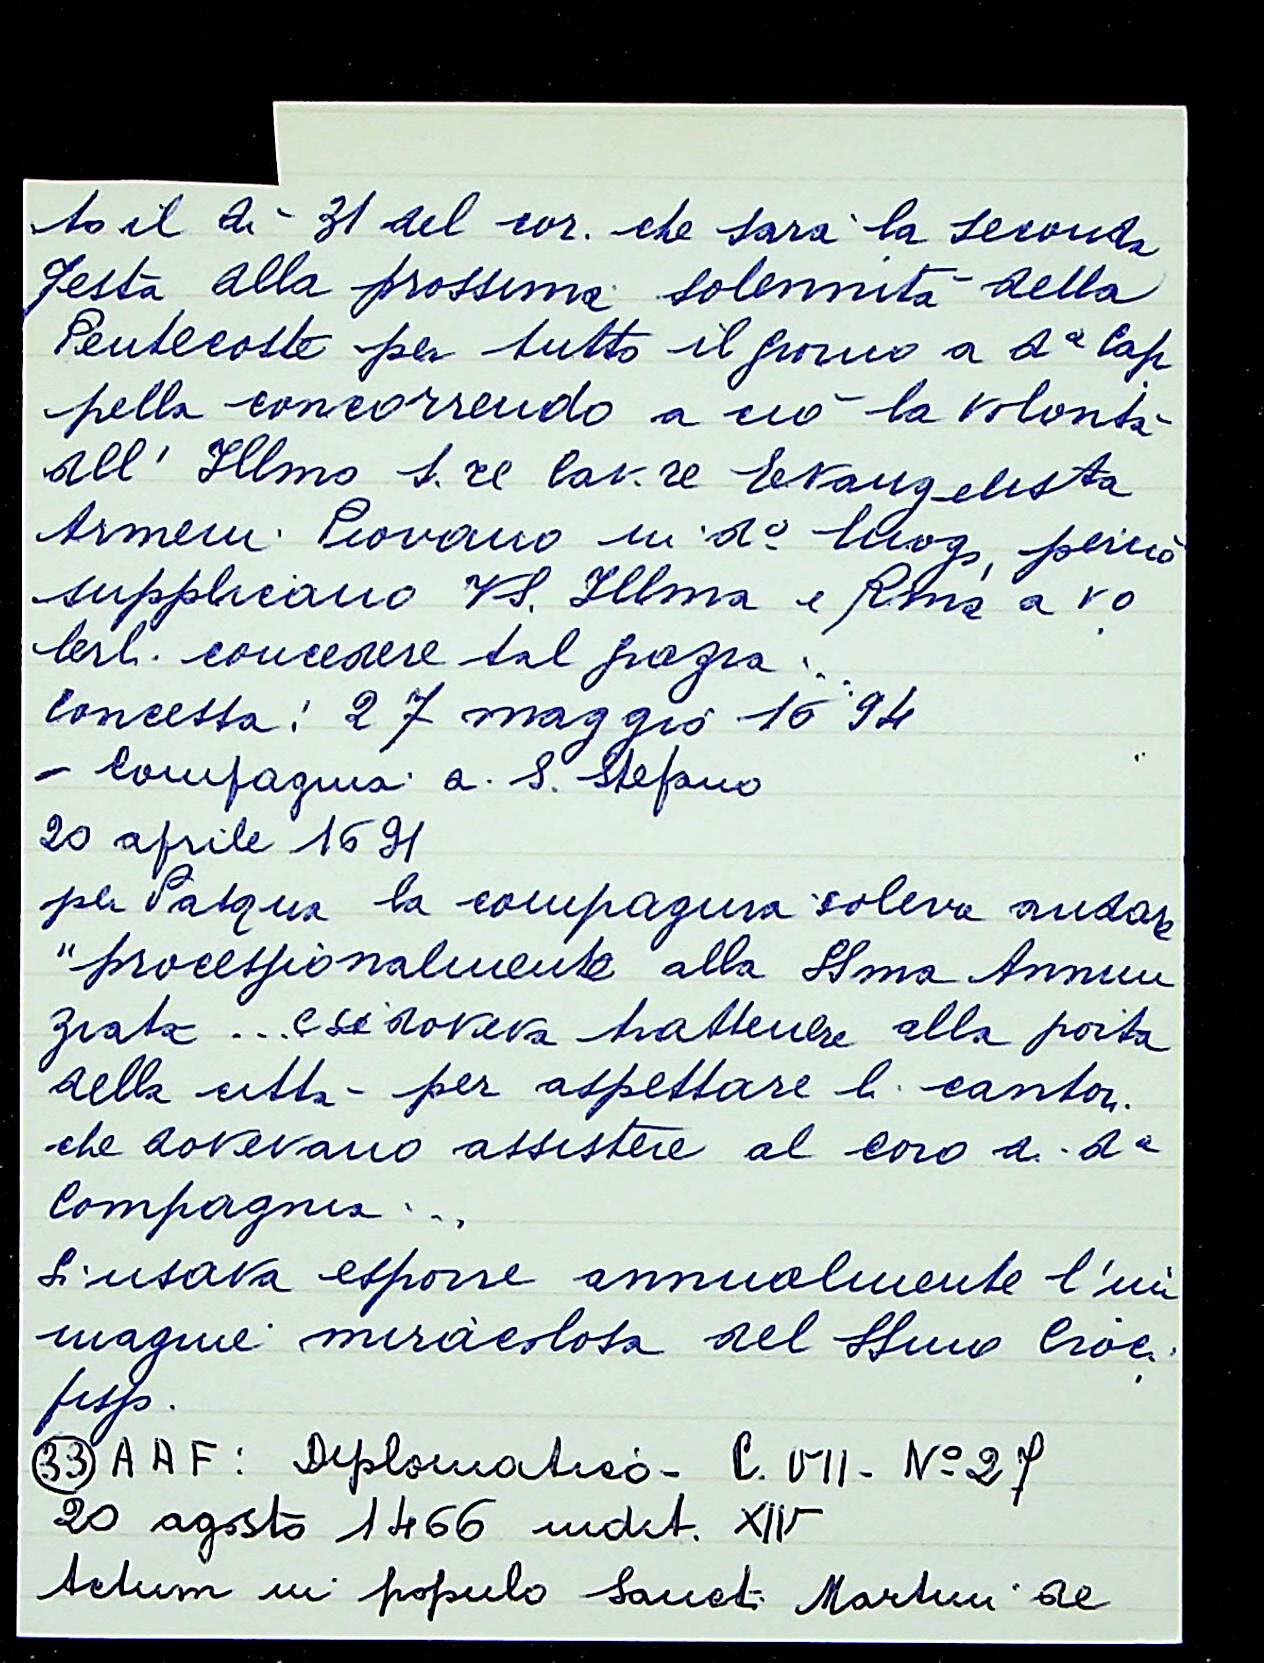 to il dì 31 del cor. che sarà la seconda
festa alla prossima solennità della
Pentecoste per tutto il giorno a dª Cap
pella concorrendo a ciò la volontà
dll' Illmo S. re Cav. re Evangelista
Armeni Piovano in dº luogo, perciò
supplicano VS. Illma e Rma a vo
lerli concedere tal grazia ...
Concessa: 27 maggio 1694
- Compagnia a S. Stefano
20 aprile 1691
per Pasqua la compagnia soleva andare
"processionalmente alla SSma Annun
ziata ... e si doveva trattenere alla porta
della città per aspettare li cantori
che dovevano assistere al coro di dª
Compagnia ...
Si usava esporre annualmente l'im
magine miracolosa del SSmo Croci
fisso.
(33) AAF: Diplomatico - C. VII - Nº 27
20 agosto 1466 indit. XIV
Actum in populo Sancti Martini de